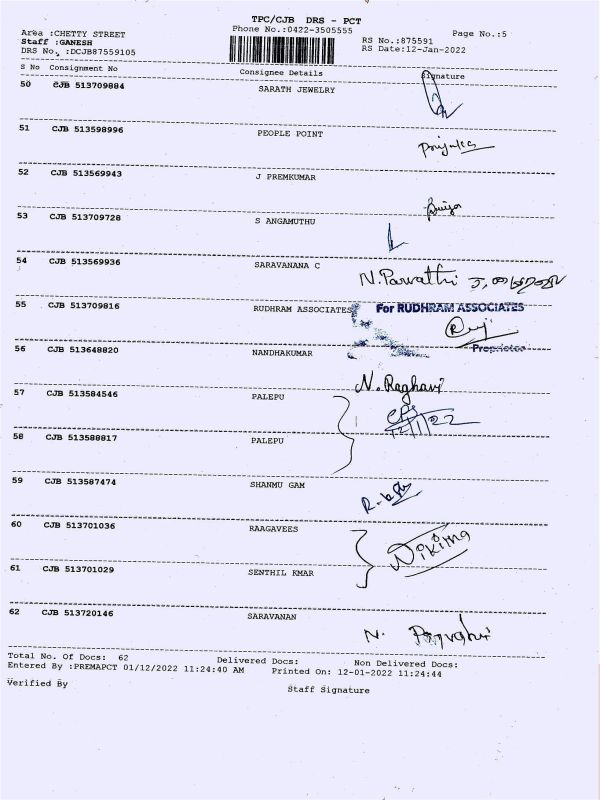 TPC/CJB DRS - PCT
Area :CHETTY STREET Phone No.:0422-3505555 Page No.:5
Staff :GANESH RS No.:875591
DRS No. :DCJB87559105 RS Date:12-Jan-2022
S No Consignment No Consignee Details Signature
50 CJB 513709884 SARATH JEWELRY
51 CJB 513598996 PEOPLE POINT
Priyanka
52 CJB 513569943 J PREMKUMAR
53 CJB 513709728 S ANGAMUTHU
54 CJB 513569936 SARAVANANA C
N. Parvathi
55 CJB 513709816 RUDHRAM ASSOCIATES For RUDHRAM ASSOCIATES
Proprietor
56 CJB 513648820 NANDHAKUMAR
N. Raghavi
57 CJB 513584546 PALEPU
12/1/22
58 CJB 513588817 PALEPU
59 CJB 513587474 SHANMU GAM
60 CJB 513701036 RAAGAVEES
61 CJB 513701029 SENTHIL KMAR
62 CJB 513720146 SARAVANAN
N.
Total No. Of Docs: 62 Delivered Docs: Non Delivered Docs:
Entered By :PREMAPCT 01/12/2022 11:24:40 AM Printed On: 12-01-2022 11:24:44
Verified By Staff Signature